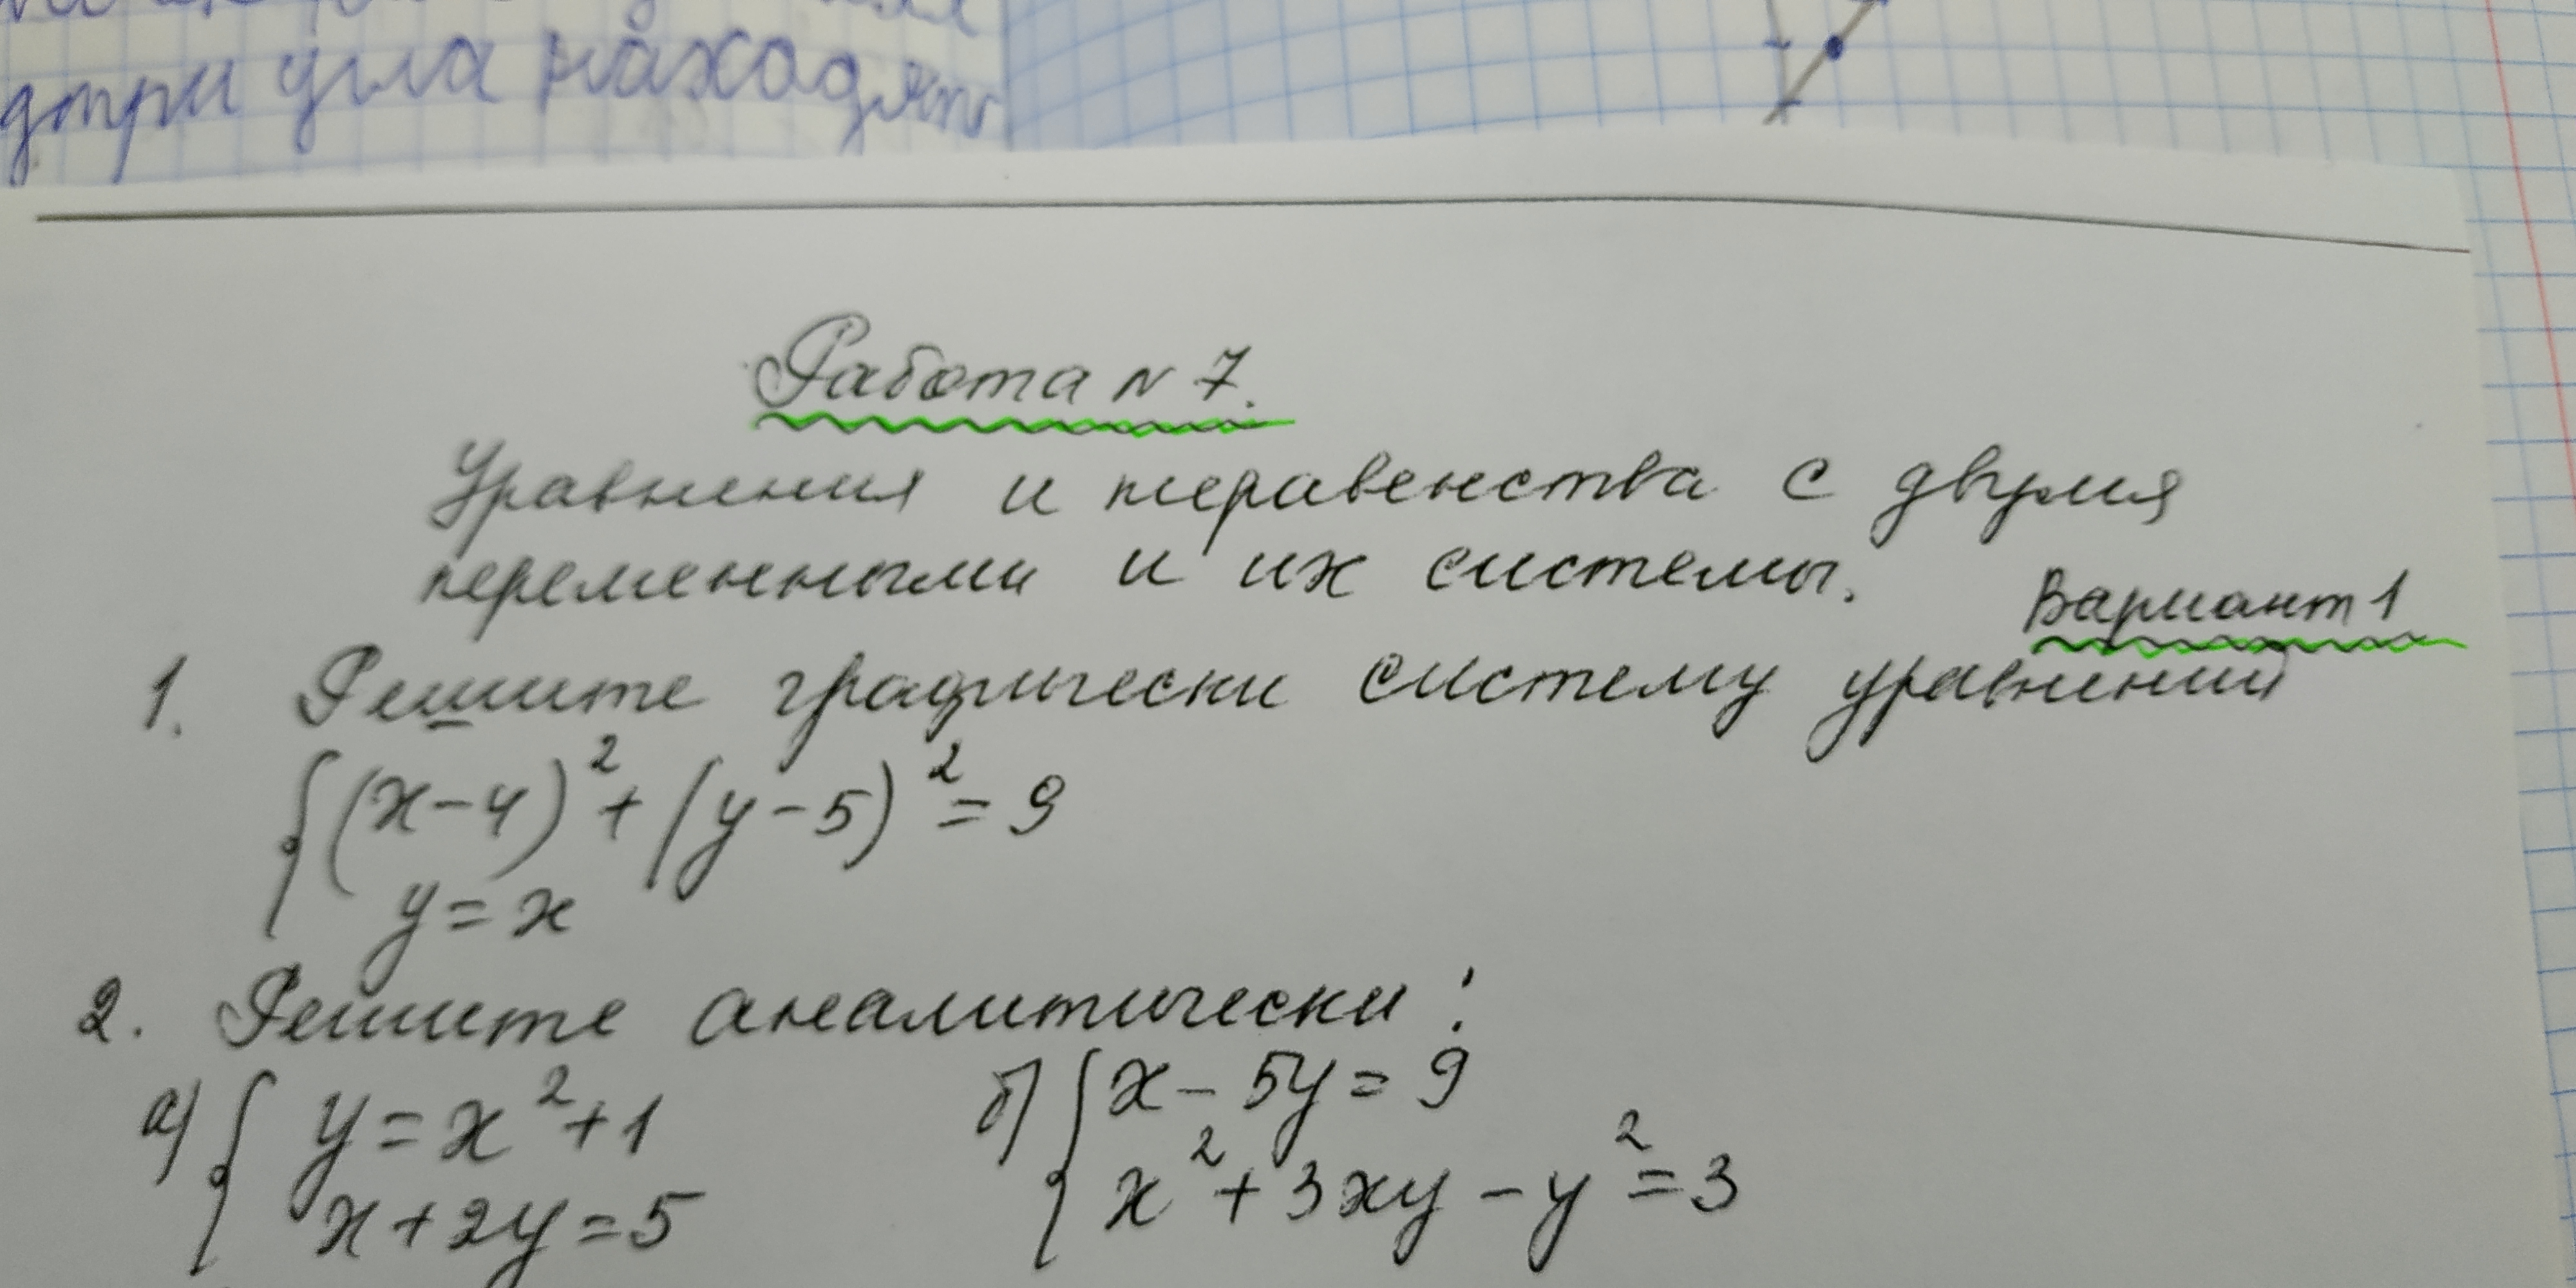 угла находят
Работа N 7.
Уравнения и неравенства с двумя
переменными и их системы.
Вариант 1
1. Решите графически систему уравнений
{(x-4)²+(y-5)²=9
y=x
2. Решите аналитически:
а) { y=x²+1
x+2y=5
б) { x-5y=9
x²+3xy-y²=3